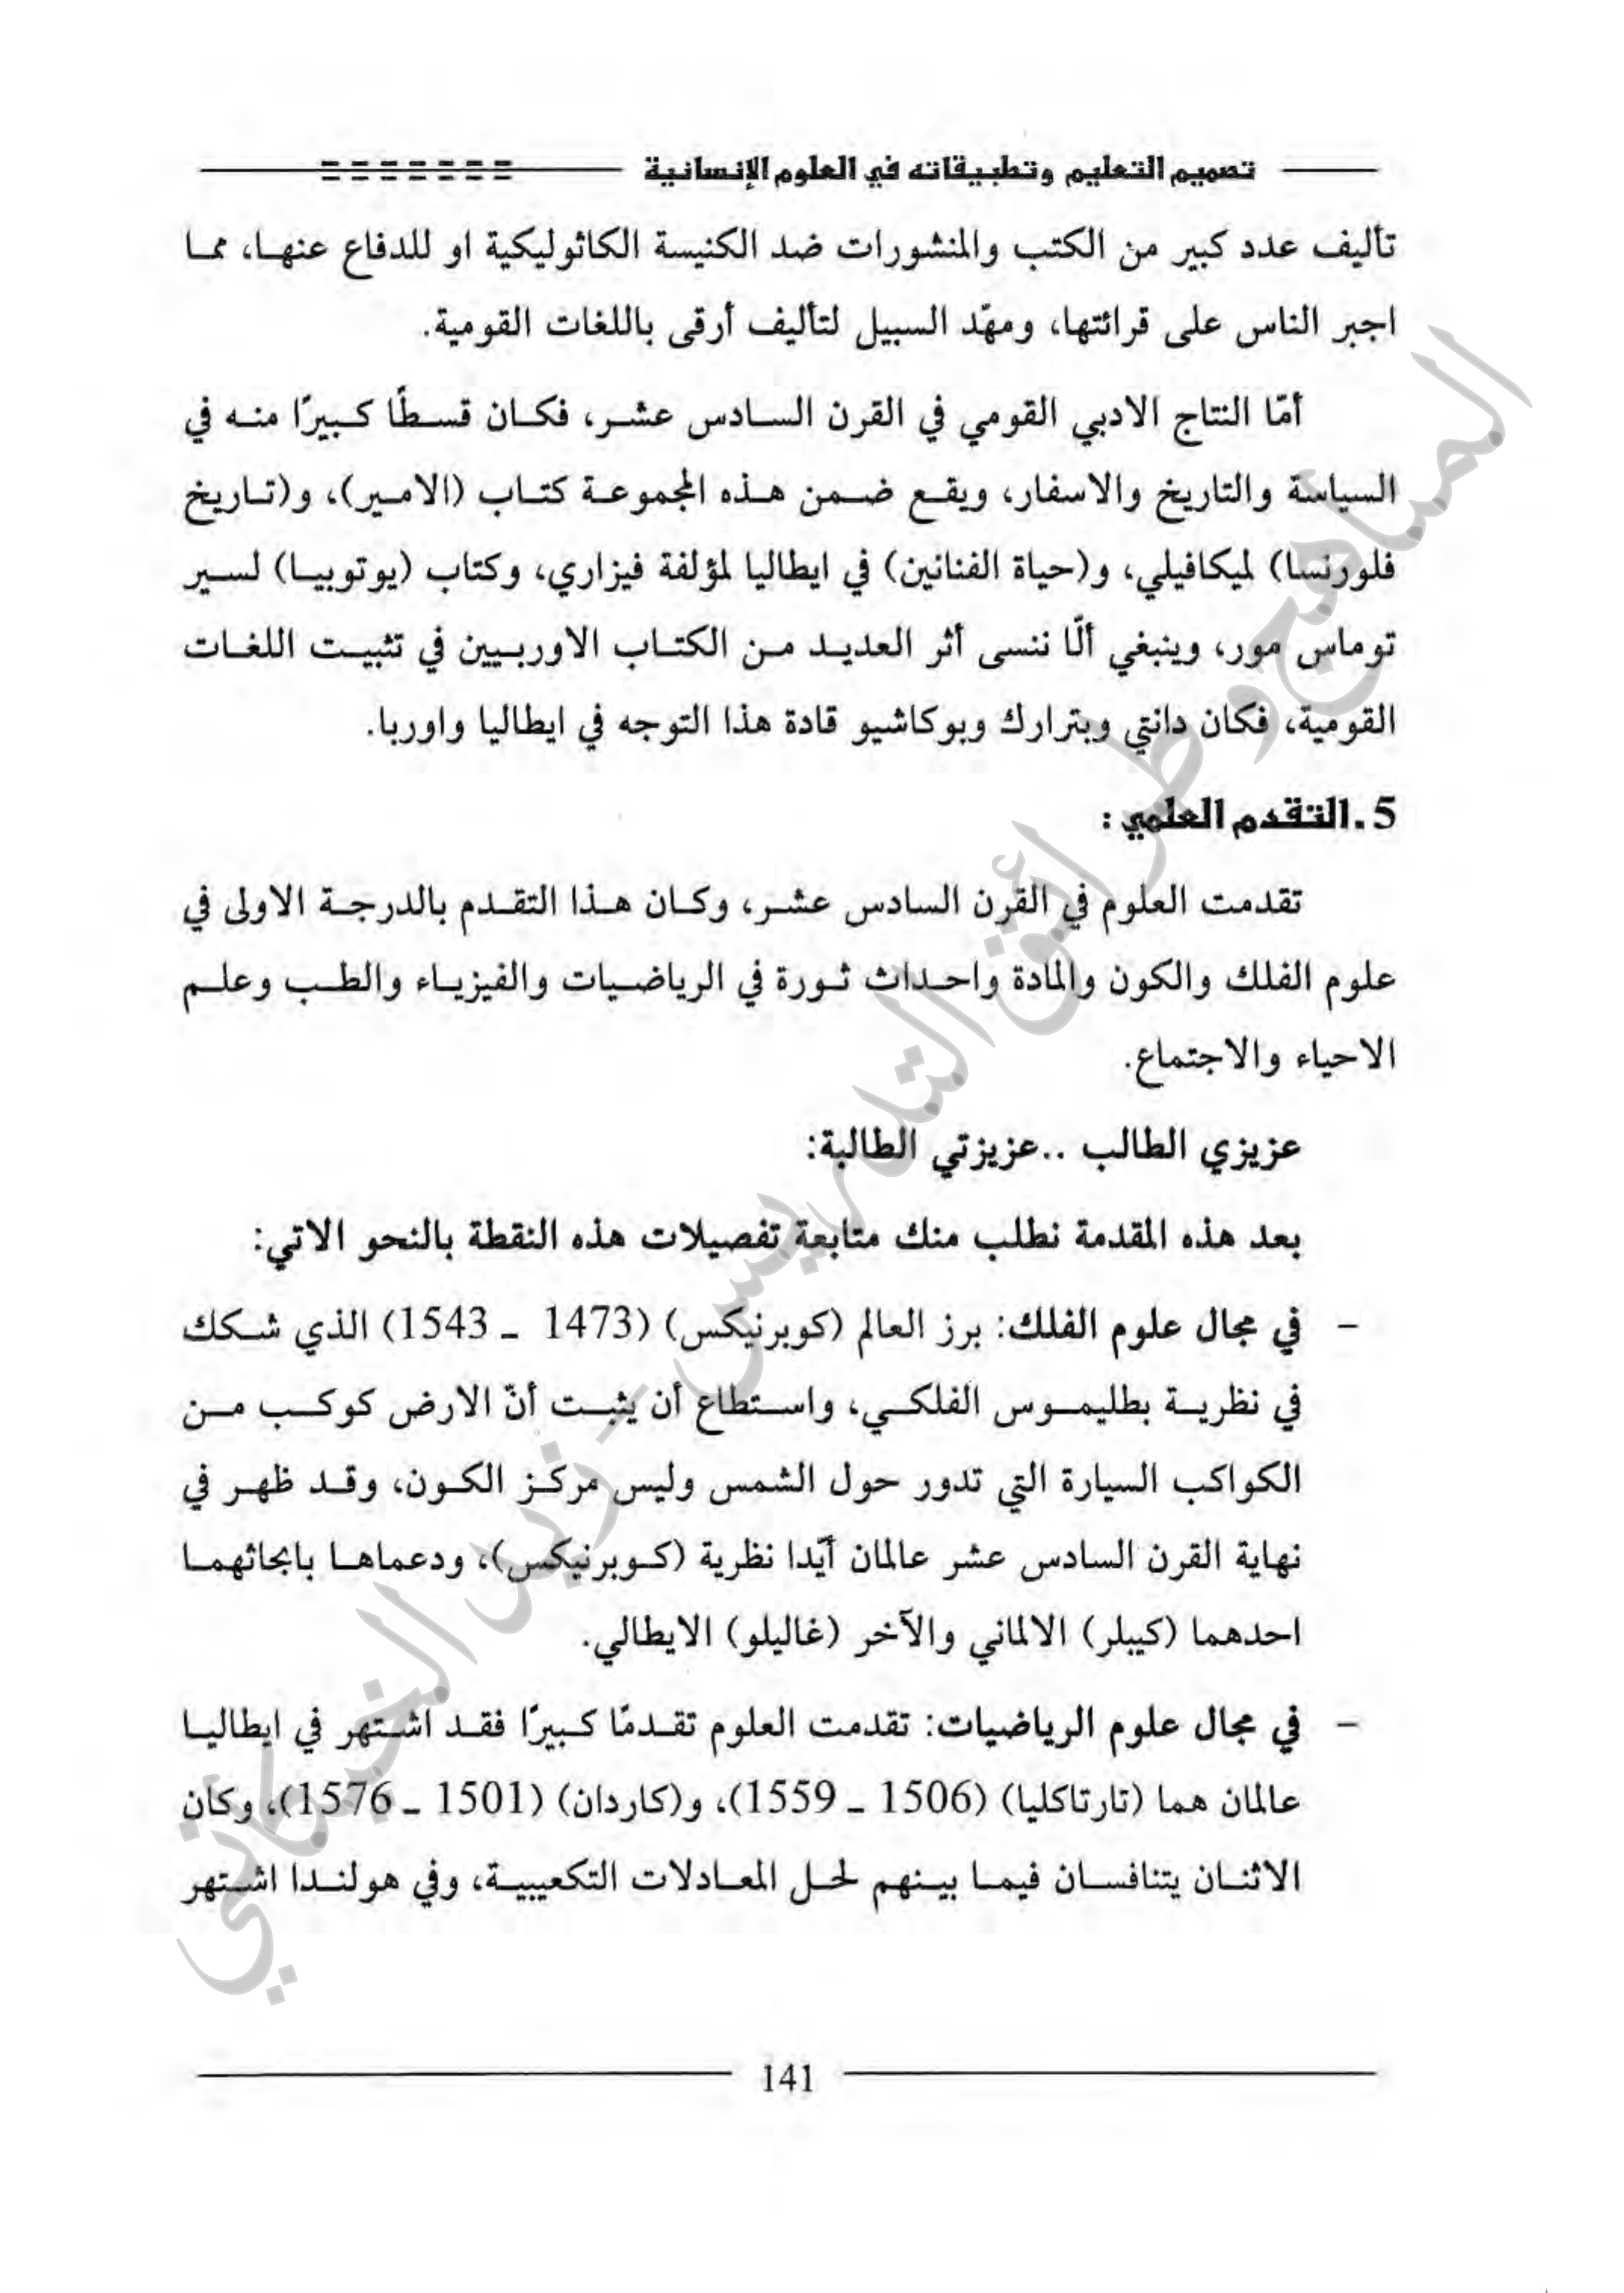 تصميم التعليم وتطبيقاته في العلوم الإنسانية
تأليف عدد كبير من الكتب والمنشورات ضد الكنيسة الكاثوليكية او للدفاع عنها، مما
اجبر الناس على قرائتها، ومهّد السبيل لتأليف أرقى باللغات القومية.
أمّا النتاج الادبي القومي في القرن السادس عشر، فكان قسطًا كبيرًا منه في
السياسة والتاريخ والاسفار، ويقع ضمن هذه المجموعة كتاب (الامير)، و(تاريخ
فلورنسا) لميكافيلي، و(حياة الفنانين) في ايطاليا لمؤلفة فيزاري، وكتاب (يوتوبيا) لسير
توماس مور، وينبغي ألّا ننسى أثر العديد من الكتاب الاوربيين في تثبيت اللغات
القومية، فكان دانتي وبترارك وبوكاشيو قادة هذا التوجه في ايطاليا واوربا.
5.التقدم العلمي:
تقدمت العلوم في القرن السادس عشر، وكان هذا التقدم بالدرجة الاولى في
علوم الفلك والكون والمادة واحداث ثورة في الرياضيات والفيزياء والطب وعلم
الاحياء والاجتماع.
عزيزي الطالب ..عزيزتي الطالبة:
بعد هذه المقدمة نطلب منك متابعة تفصيلات هذه النقطة بالنحو الاتي:
- في مجال علوم الفلك: برز العالم (كوبرنيكس) (1473 ـ 1543) الذي شكك
في نظرية بطليموس الفلكي، واستطاع أن يثبت أنّ الارض كوكب من
الكواكب السيارة التي تدور حول الشمس وليس مركز الكون، وقد ظهر في
نهاية القرن السادس عشر عالمان أيّدا نظرية (كوبرنيكس)، ودعماها بابحاثهما
احدهما (كيبلر) الالماني والآخر (غاليلو) الايطالي.
- في مجال علوم الرياضيات: تقدمت العلوم تقدمًا كبيرًا فقد اشتهر في ايطاليا
عالمان هما (تارتاكليا) (1506 ـ 1559)، و(كاردان) (1501 ـ 1576)، وكان
الاثنان يتنافسان فيما بينهم لحل المعادلات التكعيبية، وفي هولندا اشتهر
141
المناهج وطرائق التدريس - زيد الخيكاني